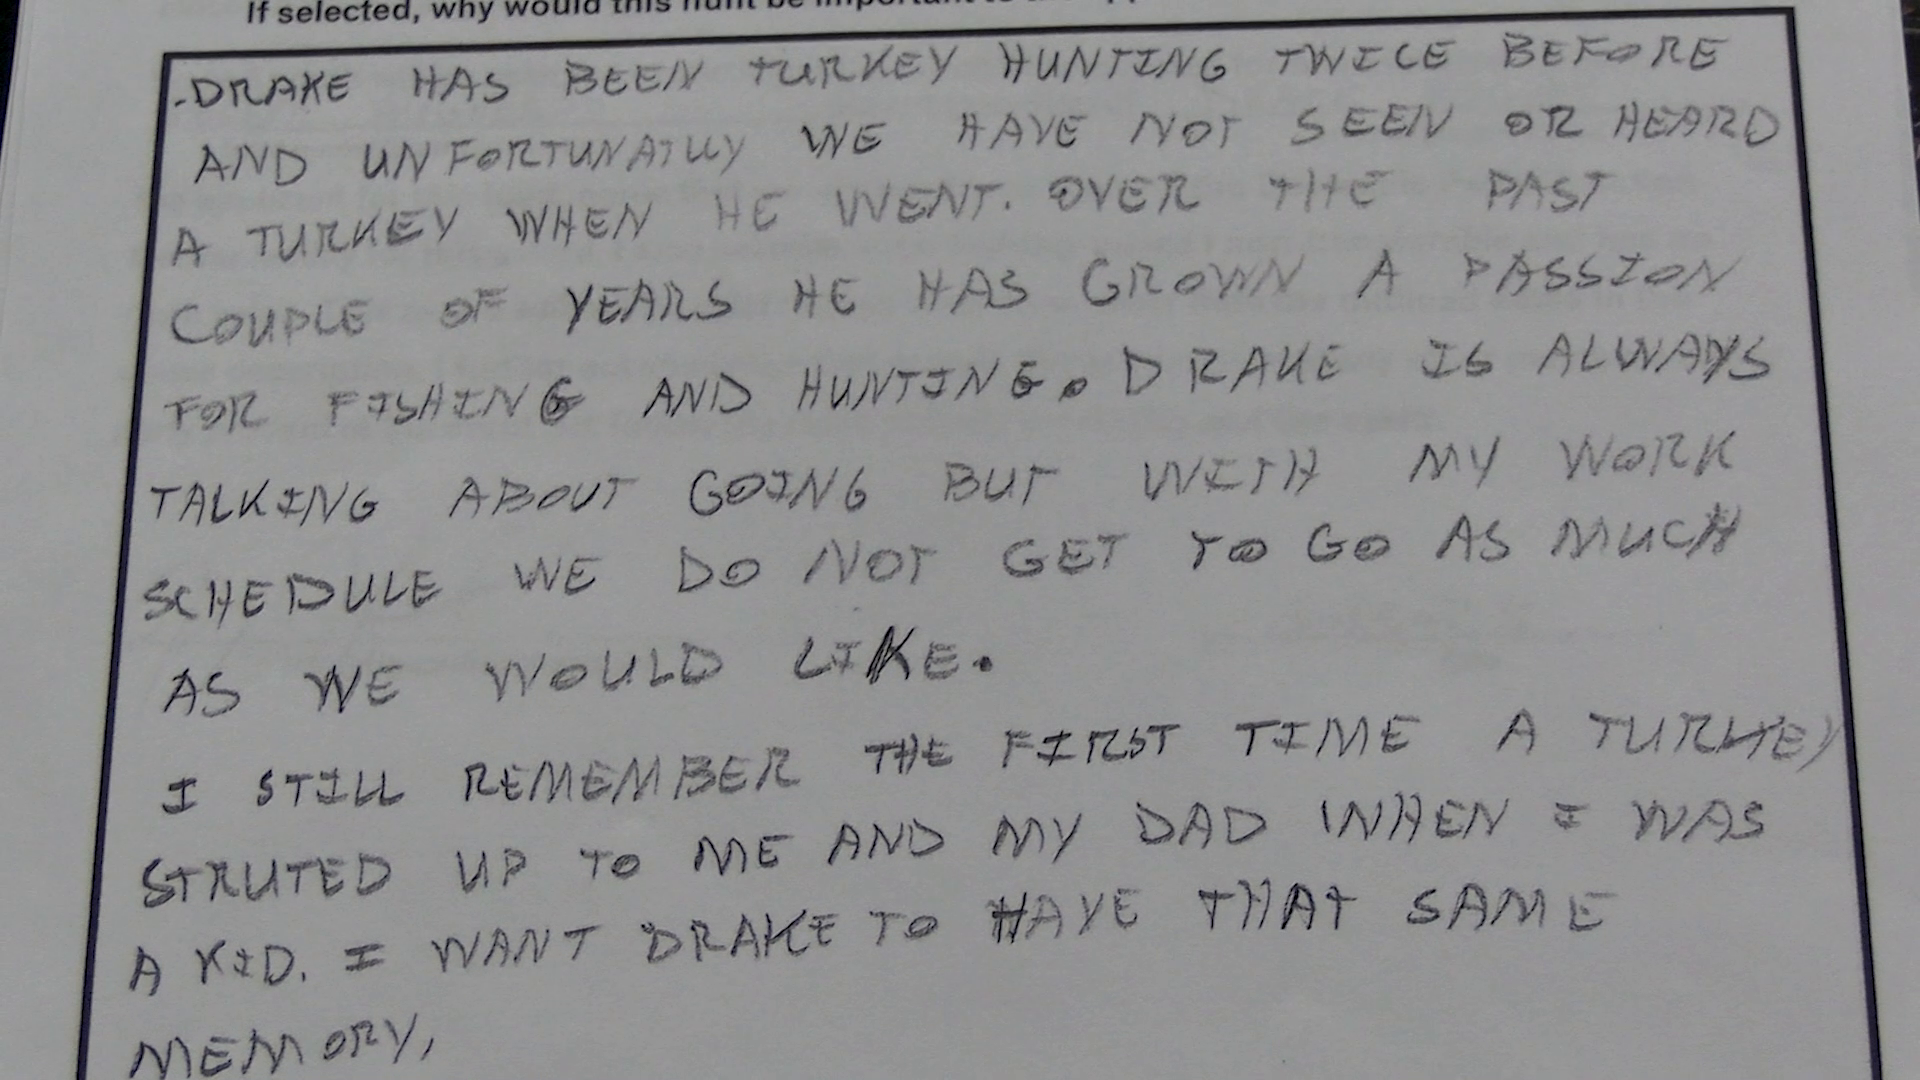 If selected, why would this hunt be important to
-DRAKE HAS BEEN TURKEY HUNTING TWICE BEFORE
AND UNFORTUNATLLY WE HAVE NOT SEEN OR HEARD
A TURKEY WHEN HE WENT. OVER THE PAST
COUPLE OF YEARS HE HAS GROWN A PASSION
FOR FISHING AND HUNTING. DRAKE IS ALWAYS
TALKING ABOUT GOING BUT WITH MY WORK
SCHEDULE WE DO NOT GET TO GO AS MUCH
AS WE WOULD LIKE.
I STILL REMEMBER THE FIRST TIME A TURKEY
STRUTED UP TO ME AND MY DAD WHEN I WAS
A KID. I WANT DRAKE TO HAVE THAT SAME
MEMORY,